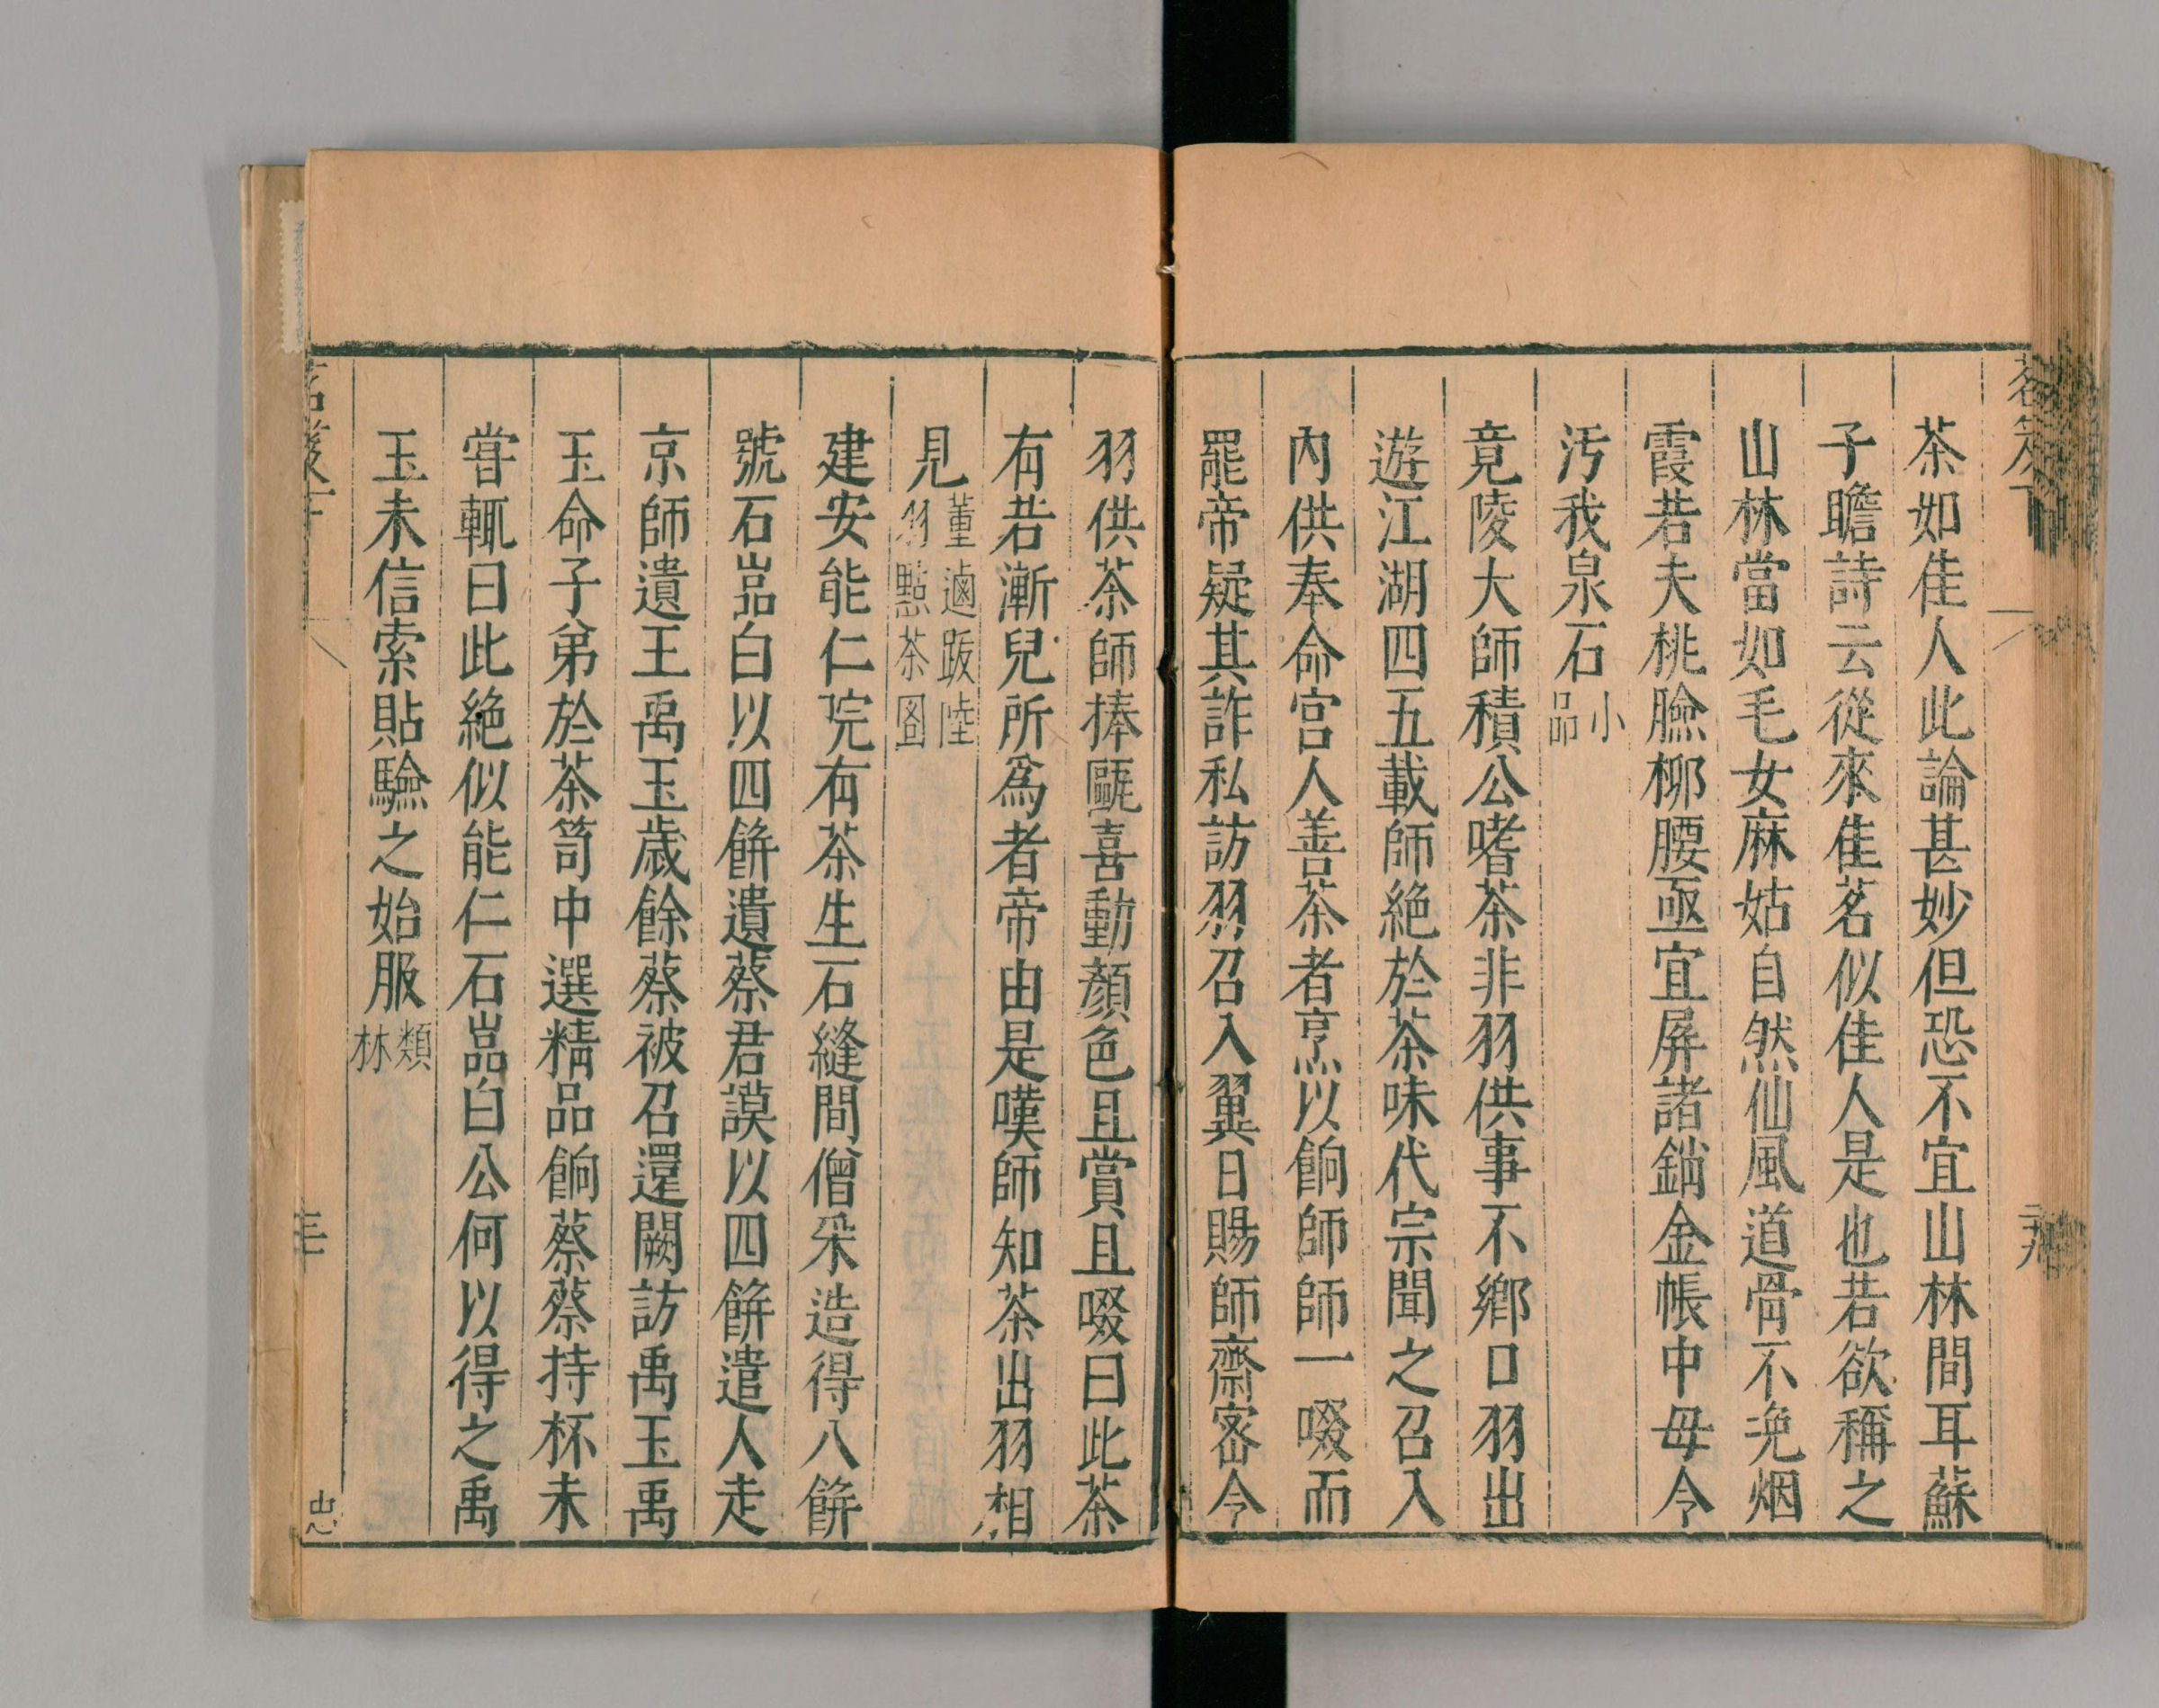 茶如佳人此論甚妙但恐不宜山林間耳蘇
子瞻詩云從來佳茗似佳人是也若欲稱之
山林當如毛女麻姑自然仙風道骨不浼烟
霞若夫桃臉柳腰亟宜屏諸銷金帳中毋令
汚我泉石小品
竟陵大師積公嗜茶非羽供事不鄉口羽出
遊江湖四五載師絶於茶味代宗聞之召入
內供奉命宮人善茶者烹以餉師師一啜而
罷帝疑其詐私訪羽召入翼日賜師齋宻令
羽供茶師捧甌喜動顏色且賞且啜曰此茶
有若漸兒所爲者帝由是嘆師知茶出羽相
見董逌跋陸羽點茶圖
建安能仁院有茶生石縫間僧采造得八餅
號石嵓白以四餅遺蔡君謨以四餅遣人走
京師遺王禹玉歲餘蔡被召還闕訪禹玉禹
玉命子弟於茶笥中選精品餉蔡蔡持杯未
嘗輒曰此絶似能仁石嵓白公何以得之禹
玉未信索貼驗之始服類林